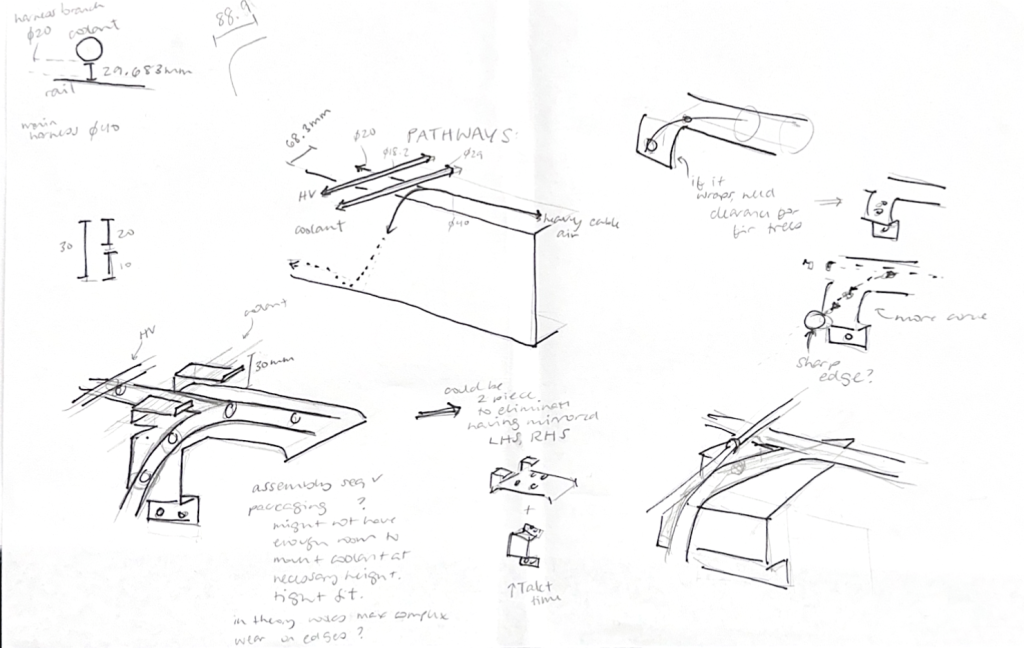 harness branch
φ20
coolant
29.683mm
rail
main
harness φ40
88.9
68.3mm
φ20
PATHWAYS:
φ18.2
φ29
HV
coolant
φ40
heavy cable
air
30
20
10
if it
wraps, need
clearance for
fir trees
more curve
sharp
edge?
HV
coolant
30mm
could be
2 piece
to eliminate
having mirrored
LHS, RHS
+
↑Takt
time
assembly seq ✓
packaging ?
might not have
enough room to
mount coolant at
necessary height.
tight fit.
in theory
max complex
wear on edges?